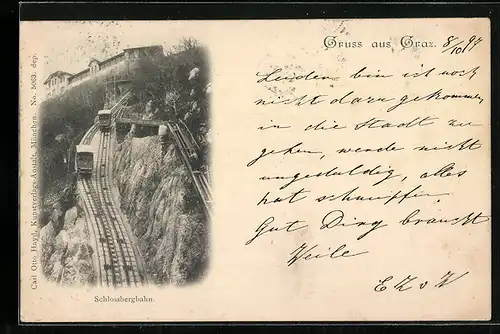 Gruss aus Graz. 8/10 97
Leider bin ich noch
nicht dazu gekommen
in die Stadt zu
gehen, werde nicht
ungeduldig, alles
hat
Gut Ding braucht
Weile
Schlossbergbahn.
Carl Otto Hayd, Kunstverlags-Anstalt, München. No. 5063. dep.